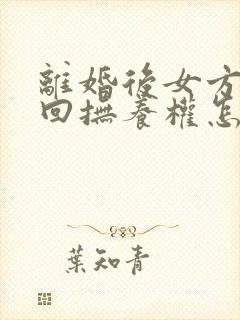 離婚後女方
回撫養權怎
葉知青